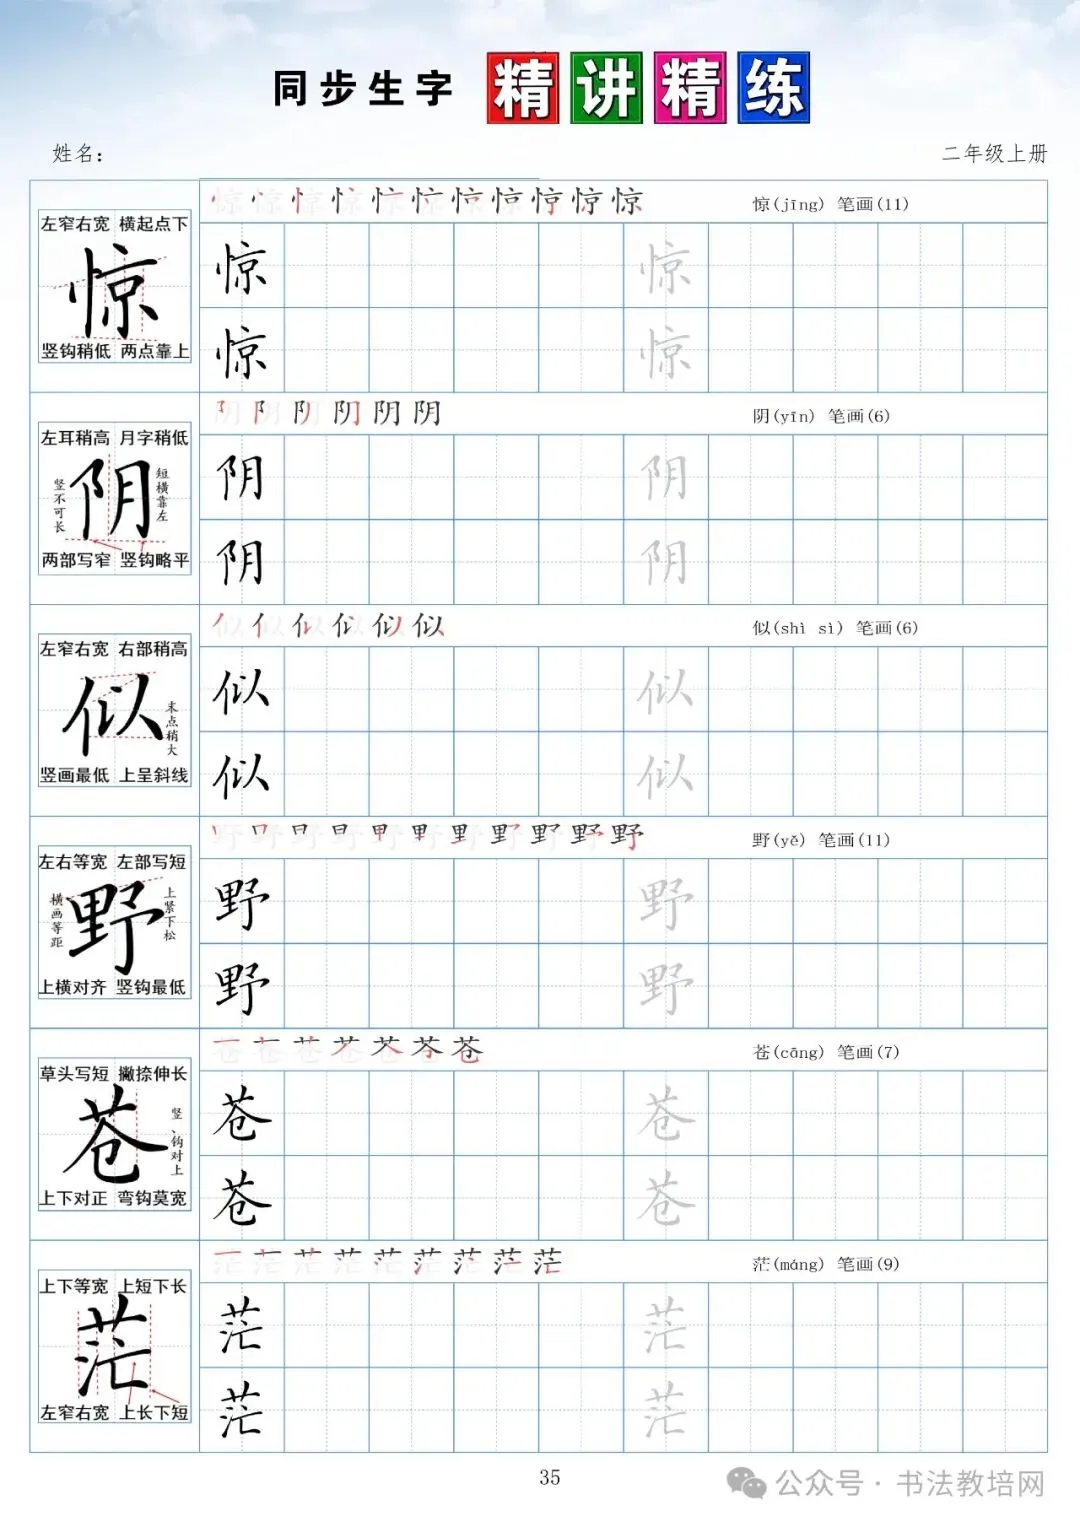 同步生字 精讲精练
姓名:
二年级上册
惊(jīng) 笔画(11)
左窄右宽 横起点下
惊
竖钩稍低 两点靠上
惊 惊
惊 惊
阴(yīn) 笔画(6)
左耳稍高 月字稍低
竖不可长
阴
短横靠左
两部写窄 竖钩略平
阴 阴
阴 阴
似(shì sì) 笔画(6)
左窄右宽 右部稍高
似
末点稍大
竖画最低 上呈斜线
似 似
似 似
野(yě) 笔画(11)
左右等宽 左部写短
横画等距
野
上紧下松
上横对齐 竖钩最低
野 野
野 野
苍(cāng) 笔画(7)
草头写短 撇捺伸长
苍
竖、钩对上
上下对正 弯钩莫宽
苍 苍
苍 苍
茫(máng) 笔画(9)
上下等宽 上短下长
茫
左窄右宽 上长下短
茫 茫
茫 茫
35
公众号·书法教培网